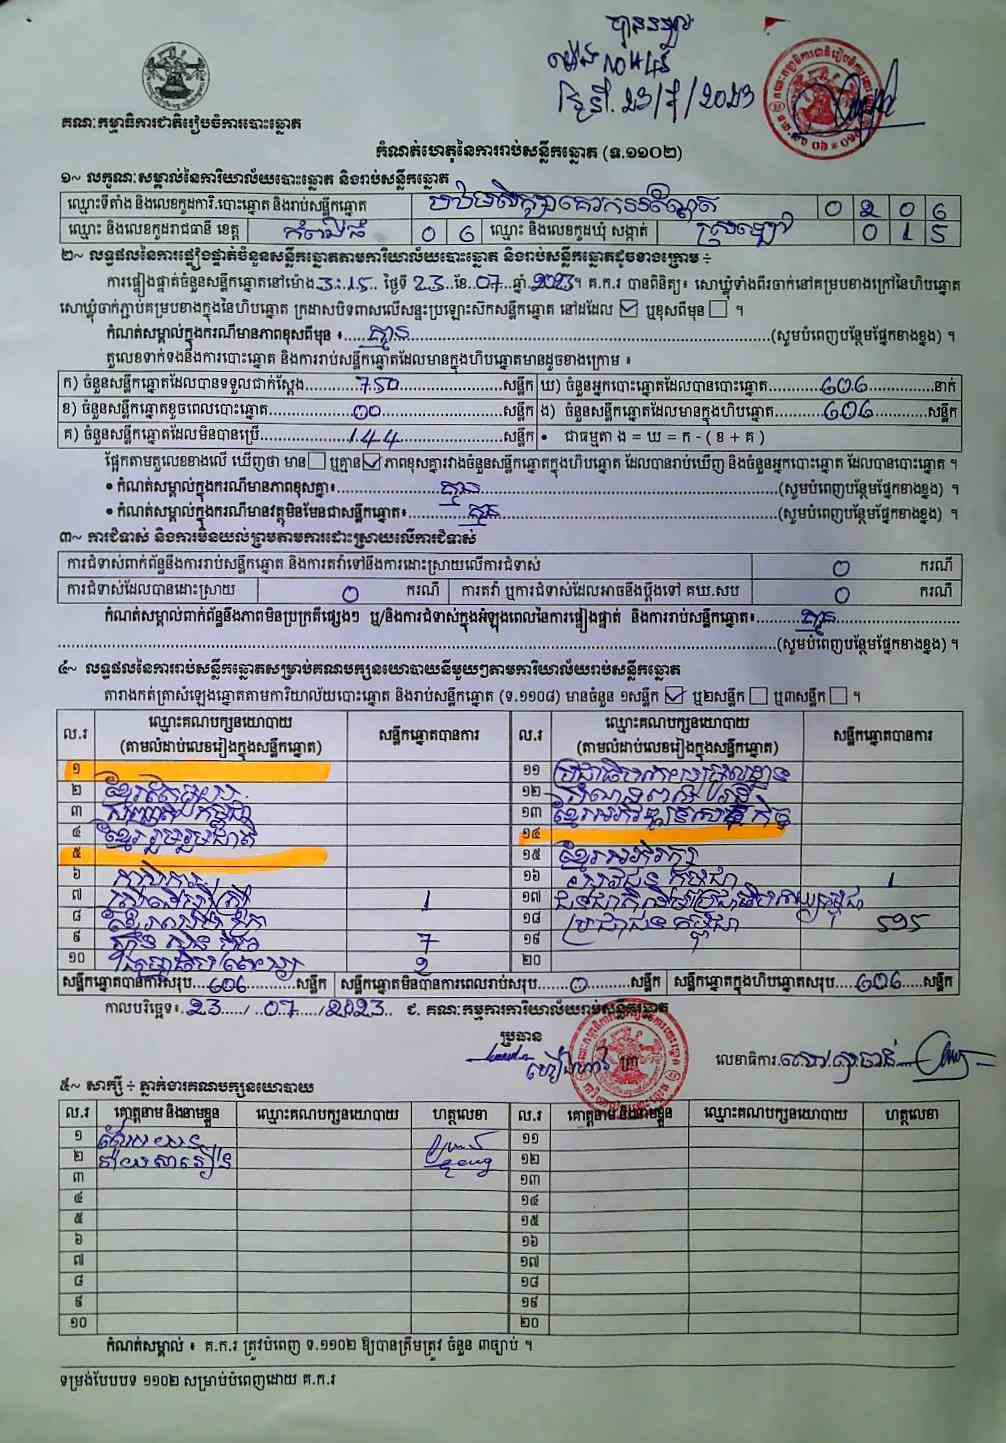 បានទទួល
ម៉ោង
ថ្ងៃទី.23/7/2023
គណៈកម្មាធិការជាតិរៀបចំការបោះឆ្នោត
កំណត់ហេតុនៃការរាប់សន្លឹកឆ្នោត (ទ.១១០២)
១~ លក្ខណៈសម្គាល់នៃការិយាល័យបោះឆ្នោត និងរាប់សន្លឹកឆ្នោត
ឈ្មោះទីតាំង និងលេខកូដការិ.បោះឆ្នោត និងរាប់សន្លឹកឆ្នោត 0 2 0 6
ឈ្មោះ និងលេខកូដរាជធានី ខេត្ត កំពង់ធំ 0 6 ឈ្មោះ និងលេខកូដឃុំ សង្កាត់ 0 1 5
២~ លទ្ធផលនៃការផ្ទៀងផ្ទាត់ចំនួនសន្លឹកឆ្នោតតាមការិយាល័យបោះឆ្នោត និងរាប់សន្លឹកឆ្នោតដូចខាងក្រោម ÷
ការផ្ទៀងផ្ទាត់ចំនួនសន្លឹកឆ្នោតនៅម៉ោង 3:15 ថ្ងៃទី 23 ខែ 07 ឆ្នាំ 2023។ គ.ក.រ បានពិនិត្យ៖ សោឃ្លុំទាំងពីរចាក់នៅគម្របខាងក្រៅនៃហិបឆ្នោត
សោឃ្លុំចាក់ភ្ជាប់គម្របខាងក្នុងនៃហិបឆ្នោត ក្រដាសបិទពាសលើសន្ទះប្រឡោះស៊កសន្លឹកឆ្នោត នៅដដែល ☑ ឬខុសពីមុន ☐ ។
កំណត់សម្គាល់ក្នុងករណីមានភាពខុសពីមុន ៖ គ្មាន (សូមបំពេញបន្ថែមផ្នែកខាងខ្នង) ។
តួលេខទាក់ទងនឹងការបោះឆ្នោត និងការរាប់សន្លឹកឆ្នោតដែលមានក្នុងហិបឆ្នោតមានដូចខាងក្រោម ៖
ក) ចំនួនសន្លឹកឆ្នោតដែលបានទទួលជាក់ស្តែង 750 សន្លឹក ឃ) ចំនួនអ្នកបោះឆ្នោតដែលបានបោះឆ្នោត 606 នាក់
ខ) ចំនួនសន្លឹកឆ្នោតខូចពេលបោះឆ្នោត 00 សន្លឹក ង) ចំនួនសន្លឹកឆ្នោតដែលមានក្នុងហិបឆ្នោត 606 សន្លឹក
គ) ចំនួនសន្លឹកឆ្នោតដែលមិនបានប្រើ 144 សន្លឹក • ជាធម្មតា ង = ឃ = ក - ( ខ + គ )
ផ្អែកតាមតួលេខខាងលើ ឃើញថា មាន ☐ ឬគ្មាន ☑ ភាពខុសគ្នារវាងចំនួនសន្លឹកឆ្នោតក្នុងហិបឆ្នោត ដែលបានរាប់ឃើញ និងចំនួនអ្នកបោះឆ្នោត ដែលបានបោះឆ្នោត ។
• កំណត់សម្គាល់ក្នុងករណីមានភាពខុសគ្នា៖ គ្មាន (សូមបំពេញបន្ថែមផ្នែកខាងខ្នង) ។
• កំណត់សម្គាល់ក្នុងករណីមានវត្ថុមិនមែនជាសន្លឹកឆ្នោត៖ គ្មាន (សូមបំពេញបន្ថែមផ្នែកខាងខ្នង) ។
៣~ ការជំទាស់ និងការមិនយល់ព្រមតាមការដោះស្រាយលើការជំទាស់
ការជំទាស់ពាក់ព័ន្ធនឹងការរាប់សន្លឹកឆ្នោត និងការតវ៉ាទៅនឹងការដោះស្រាយលើការជំទាស់ 0 ករណី
ការជំទាស់ដែលបានដោះស្រាយ 0 ករណី ការតវ៉ា ឬការជំទាស់ដែលអាចនឹងប្តឹងទៅ គឃ.សប 0 ករណី
កំណត់សម្គាល់ពាក់ព័ន្ធនឹងភាពមិនប្រក្រតីផ្សេងៗ ឬ/និងការជំទាស់ក្នុងអំឡុងពេលនៃការផ្ទៀងផ្ទាត់ និងការរាប់សន្លឹកឆ្នោត៖ គ្មាន
(សូមបំពេញបន្ថែមផ្នែកខាងខ្នង) ។
៤~ លទ្ធផលនៃការរាប់សន្លឹកឆ្នោតសម្រាប់គណបក្សនយោបាយនីមួយៗតាមការិយាល័យរាប់សន្លឹកឆ្នោត
តារាងកត់ត្រាសំឡេងឆ្នោតតាមការិយាល័យបោះឆ្នោត និងរាប់សន្លឹកឆ្នោត (ទ.១១០៨) មានចំនួន ១សន្លឹក ☑ ឬ២សន្លឹក ☐ ឬ៣សន្លឹក ☐ ។
ល.រ ឈ្មោះគណបក្សនយោបាយ (តាមលំដាប់លេខរៀងក្នុងសន្លឹកឆ្នោត) សន្លឹកឆ្នោតបានការ ល.រ ឈ្មោះគណបក្សនយោបាយ (តាមលំដាប់លេខរៀងក្នុងសន្លឹកឆ្នោត) សន្លឹកឆ្នោតបានការ
១ ១១
២ ១២
៣ ១៣ ខ្មែរអភិវឌ្ឍន៍សេដ្ឋកិច្ច
៤ ខ្មែររួបរួមជាតិ ១៤
៥ ១៥ ខ្មែរអភិរក្ស
៦ ១៦ 1
៧ 1 ១៧
៨ ១៨ ប្រជាជនកម្ពុជា 595
៩ 7 ១៩
១០ 2 ២០
សន្លឹកឆ្នោតបានការសរុប 606 សន្លឹក សន្លឹកឆ្នោតមិនបានការពេលរាប់សរុប 0 សន្លឹក សន្លឹកឆ្នោតក្នុងហិបឆ្នោតសរុប 606 សន្លឹក
កាលបរិច្ឆេទ៖ 23 / 07 / 2023 ជ. គណៈកម្មការការិយាល័យរាប់សន្លឹកឆ្នោត
ប្រធាន
លេខាធិការ
៥~ សាក្សី ÷ ភ្នាក់ងារគណបក្សនយោបាយ
ល.រ គោត្តនាម និងនាមខ្លួន ឈ្មោះគណបក្សនយោបាយ ហត្ថលេខា ល.រ គោត្តនាម និងនាមខ្លួន ឈ្មោះគណបក្សនយោបាយ ហត្ថលេខា
១ ១១
២ ១២
៣ ១៣
៤ ១៤
៥ ១៥
៦ ១៦
៧ ១៧
៨ ១៨
៩ ១៩
១០ ២០
កំណត់សម្គាល់ ៖ គ.ក.រ ត្រូវបំពេញ ទ.១១០២ ឱ្យបានត្រឹមត្រូវ ចំនួន ៣ច្បាប់ ។
ទម្រង់បែបបទ ១១០២ សម្រាប់បំពេញដោយ គ.ក.រ